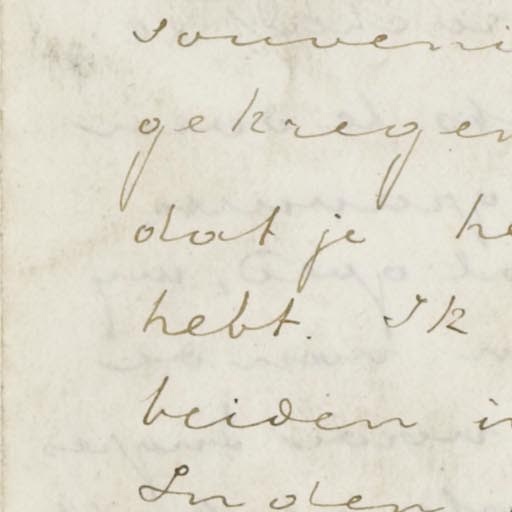 souveni
gekregen
dat je he
hebt. Ik
beiden in
Inden